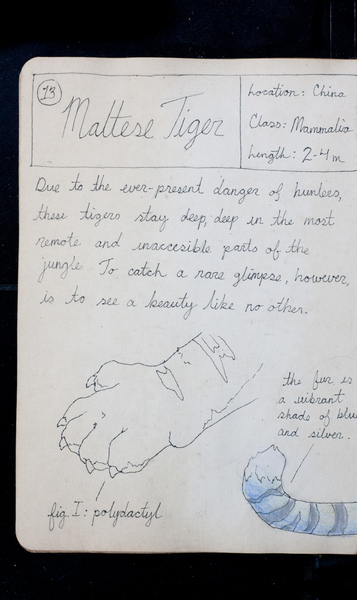 13
Maltese Tiger
Location: China
Class: Mammalia
Length: 2-4m
Due to the ever-present danger of hunters,
these tigers stay deep, deep in the most
remote and inaccesible parts of the
jungle. To catch a rare glimpse, however,
is to see a beauty like no other.
the fur is
a vibrant
shade of blue
and silver.
fig. I: polydactyl